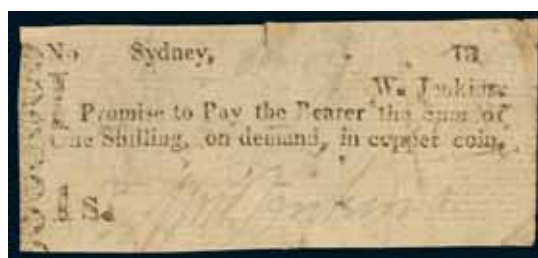 No Sydney, 18
Wm Jenkins.
I Promise to Pay the Bearer the sum of
One Shilling, on demand, in copper coin.
1 S.
Wm Jenkins